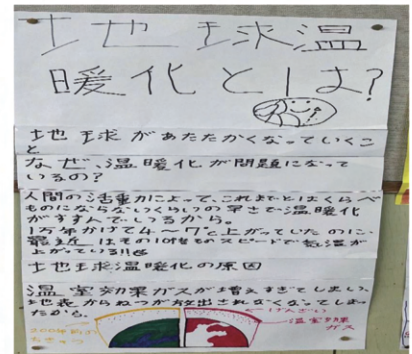 地球温
暖化とは?
地球があたたかくなっていくこ
と
なぜ、温暖化が問題になって
いるの?
人間の活動によって、これまでとはくらべ
ものにならないくらいの早さで温暖化
がすすんでいるから。
1万年かけて4～7℃上がっていたのに、
最近はその10倍ものスピードで気温が
上がっている!!
地球温暖化の原因
温室効果ガスが増えすぎてしまい、
地表からねつが放出されなくなってしまっ
たから。
げんざい
温室効果
ガス
200年前の
ちきゅう